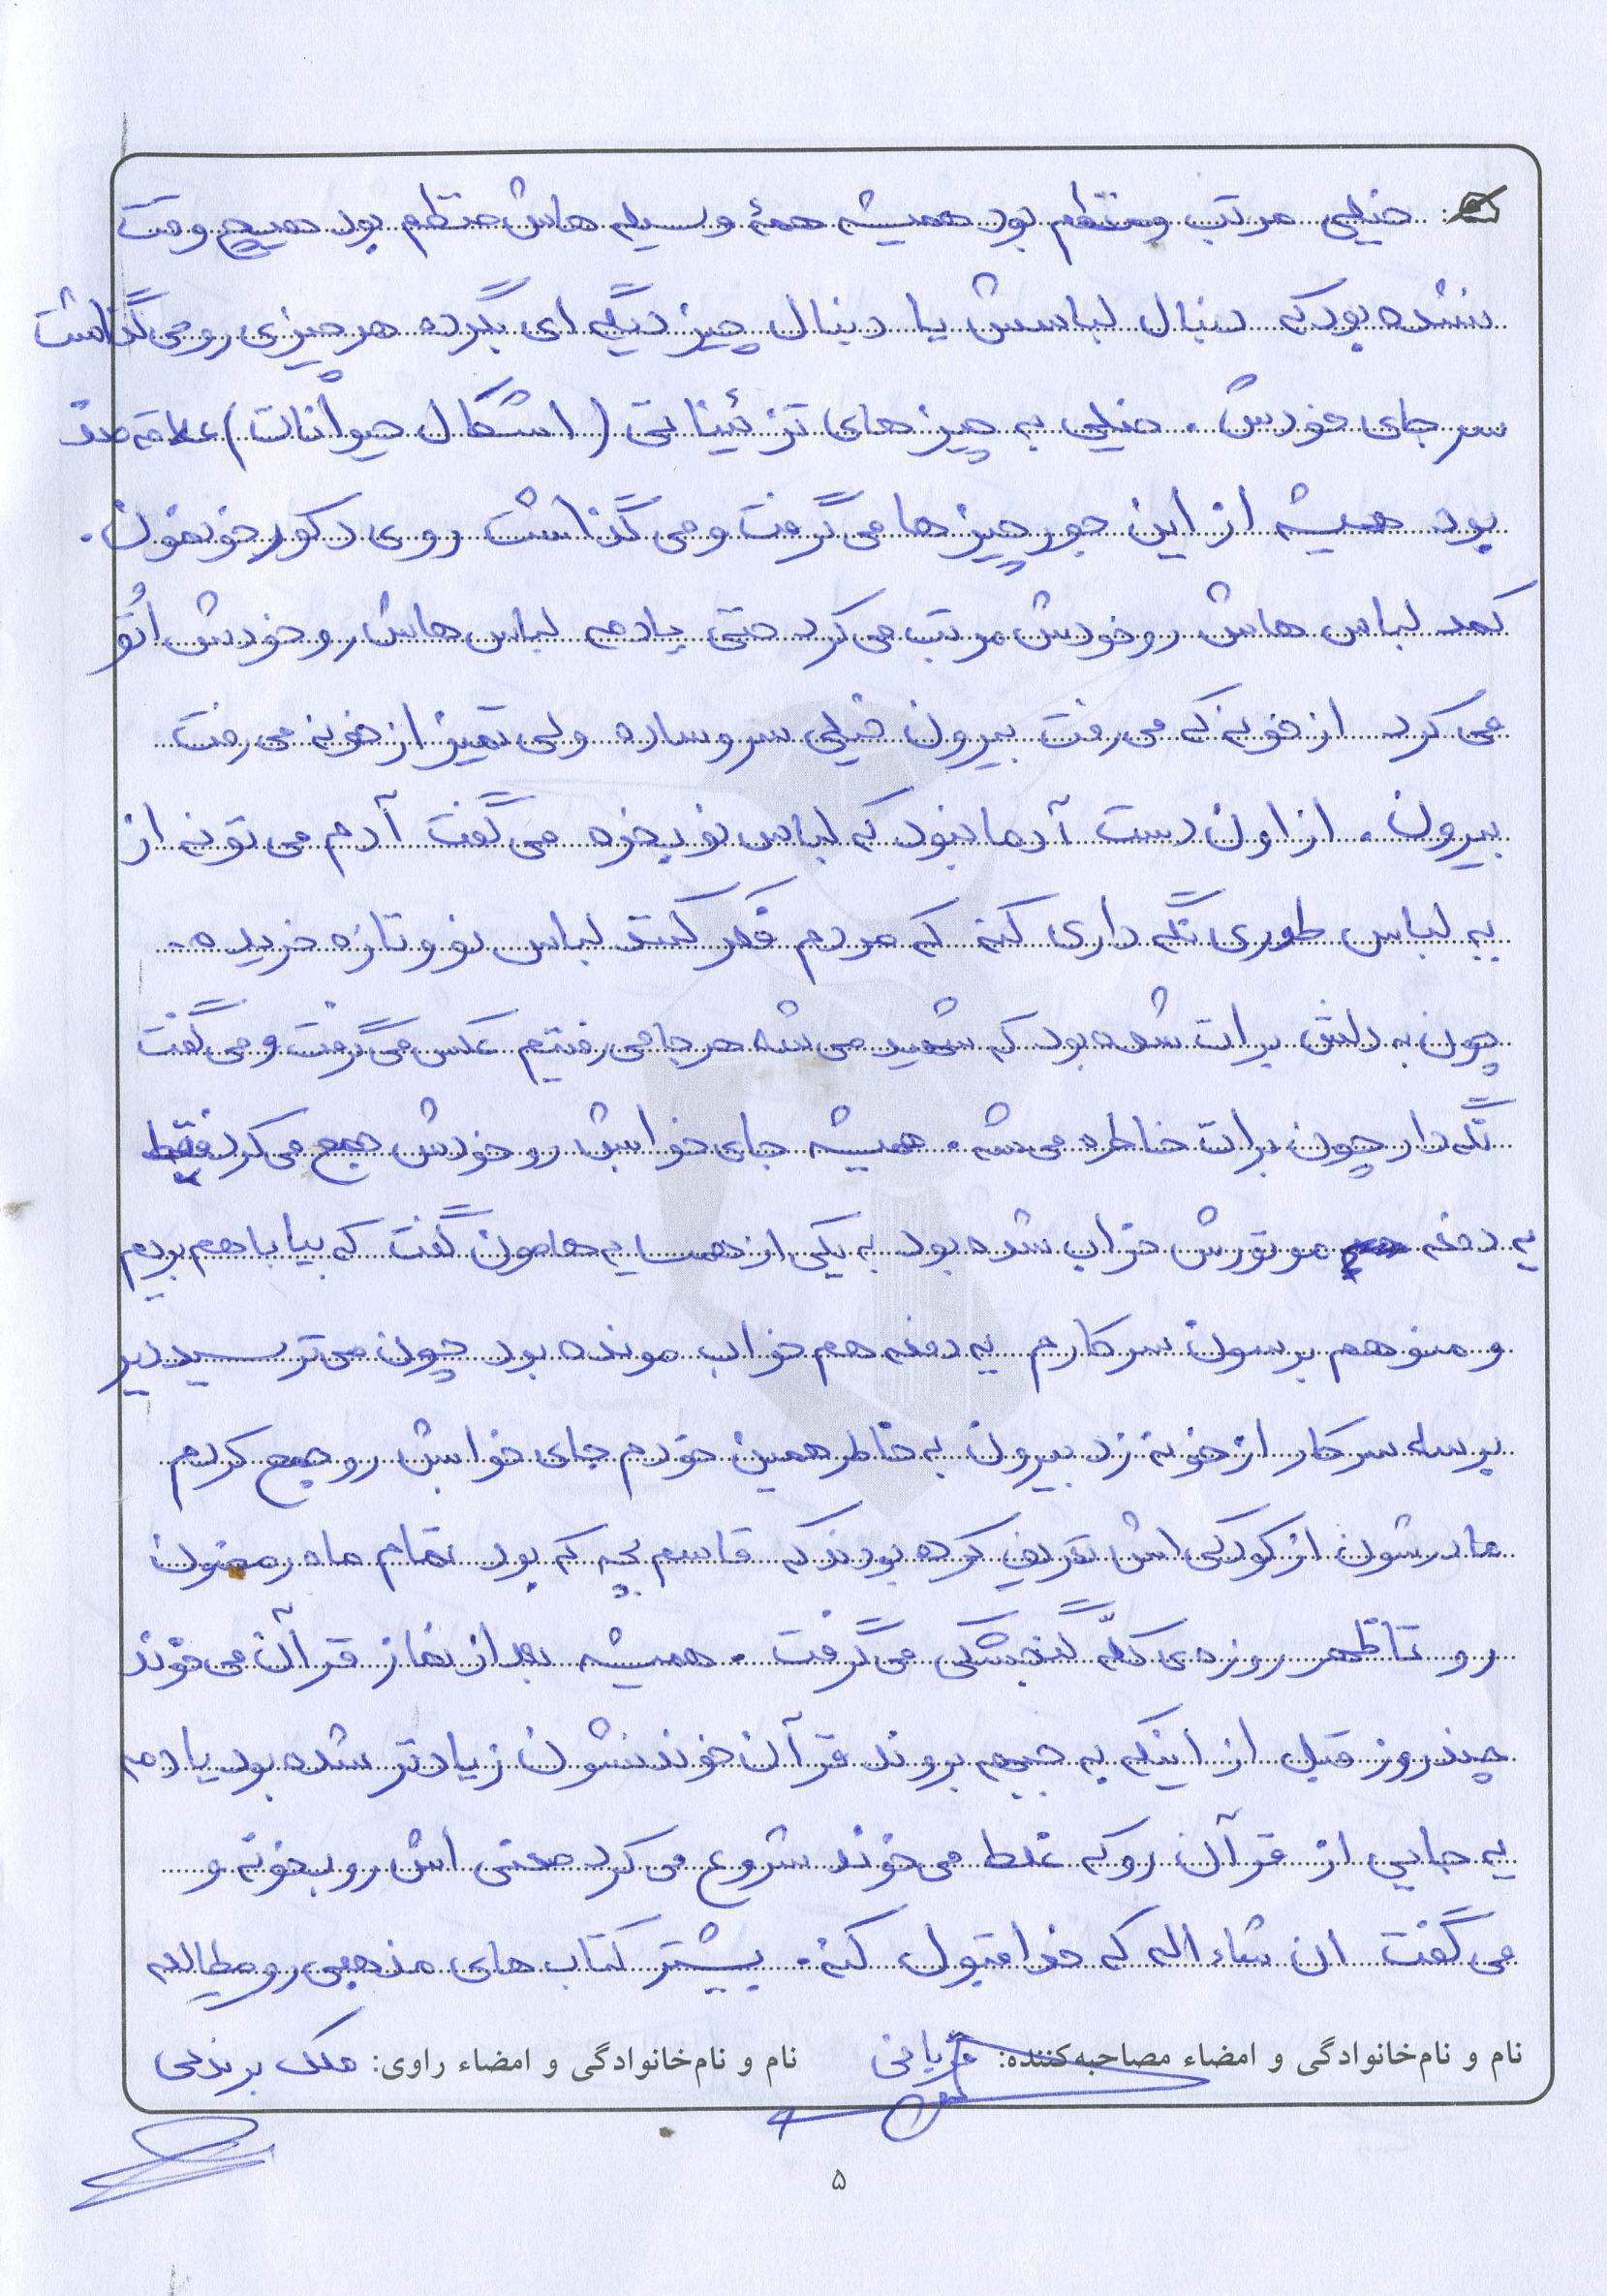 خیلی مرتب ومنظم بود همیشه همۀ وسیله هاش منظم بود هیچ وقت
نشده بود که دنبال لباسش یا دنبال چیز دیگه ای بگرده هر چیزی رو می گذاشت
سر جای خودش . خیلی به چیز های تزئیناتی ( اشکال حیوانات ) علاقه مند
بود همیشه از این جور چیز ها می گرفت و می گذاشت روی دکور خونمون .
کمد لباس هاش رو خودش مرتب می کرد حتی یادمه لباس هاش رو خودش اتو
می کرد از خونه که می رفت بیرون خیلی سر و ساده ولی تمیز از خونه می رفت
بیرون . از اون دست آدما نبود که لباس نو بخره می گفت آدم می تونه از
یه لباس طوری نگه داری کنه که مردم فکر کنند لباس نو و تازه خریده .
چون به دلش برات شده بود که شهید می شه هر جا می رفتیم عکس می گرفت و می گفت
نگه دار چون برات خاطره می شه . همیشه جای خوابش رو خودش جمع می کرد فقط
یه دفعه موتورش خراب شده بود به یکی از همسایه هامون گفت که بیا با هم بریم
و منو هم برسون سر کارم یه دفعه هم خواب مونده بود چون می ترسید دیر
برسه سر کار از خونه زد بیرون به خاطر همین خودم جای خوابش رو جمع کردم
مادرشون از کودکی اش تعریف کرده بودند که قاسم بچه که بود تمام ماه رمضون
رو تا ظهر روزه ی کلّه گنجشکی می گرفت . همیشه بعد از نماز قرآن می خوند
چند روز قبل از اینکه به جبهه بروند قرآن خوندنشون زیادتر شده بود یادمه
یه جایی از قرآن رو که غلط می خوند شروع می کرد معنی اش رو بخونه و
می گفت ان شاء اله که خدا قبول کنه . بیشتر کتاب های مذهبی رو مطالعه
نام و نام‌خانوادگی و امضاء مصاحبه‌کننده: قربانی نام و نام‌خانوادگی و امضاء راوی: ملک برندمی
۵